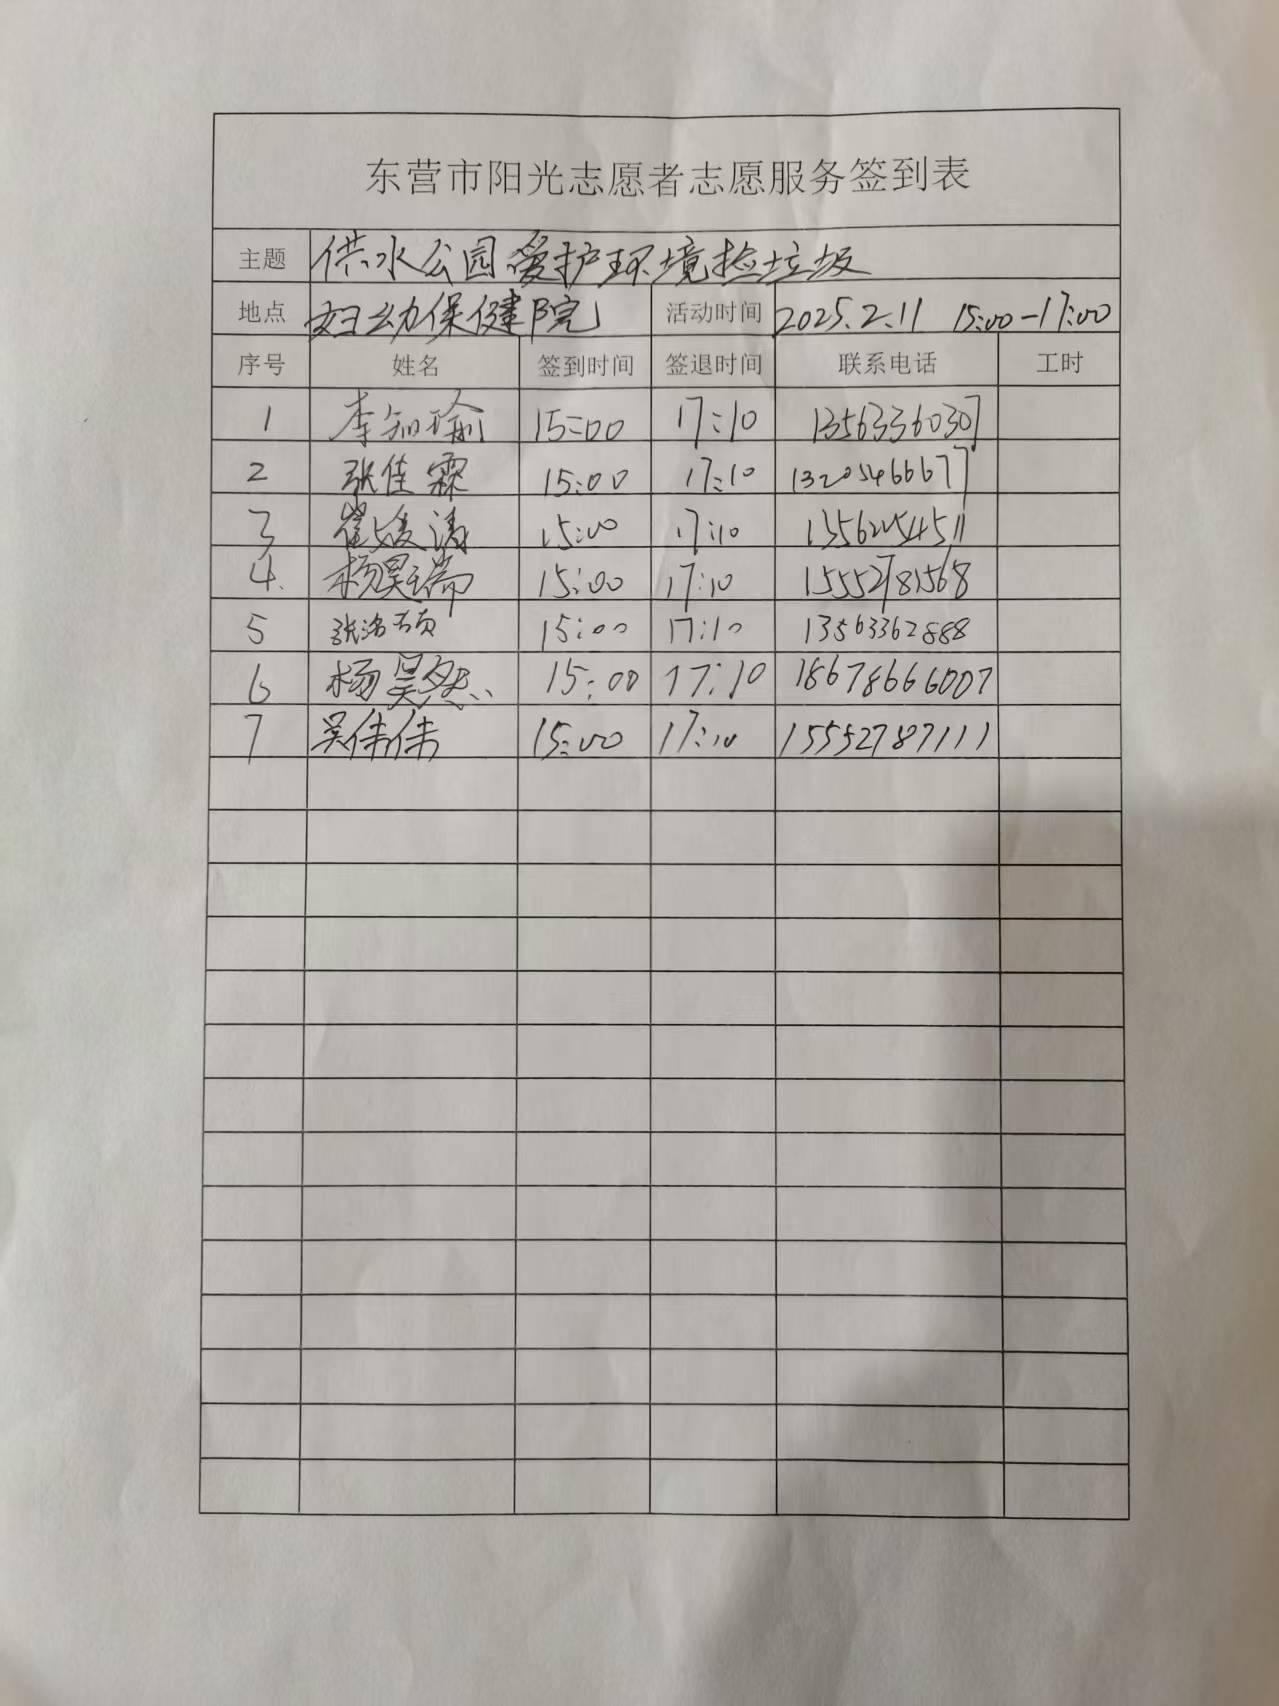 东营市阳光志愿者志愿服务签到表
主题 供水公园爱护环境捡垃圾
地点 妇幼保健院 活动时间 2025.2.11 15:00-17:00
序号 姓名 签到时间 签退时间 联系电话 工时
1 李知瑜 15:00 17:10 13563360307
2 张佳霖 15:00 17:10 13205466677
3 崔媛涛 15:00 17:10 13562254511
4. 杨昊瑞 15:00 17:10 15552781568
5 张洛硕 15:00 17:10 13563362888
6 杨昊然 15:00 17:10 18678666007
7 吴伟伟 15:00 17:10 15552787111